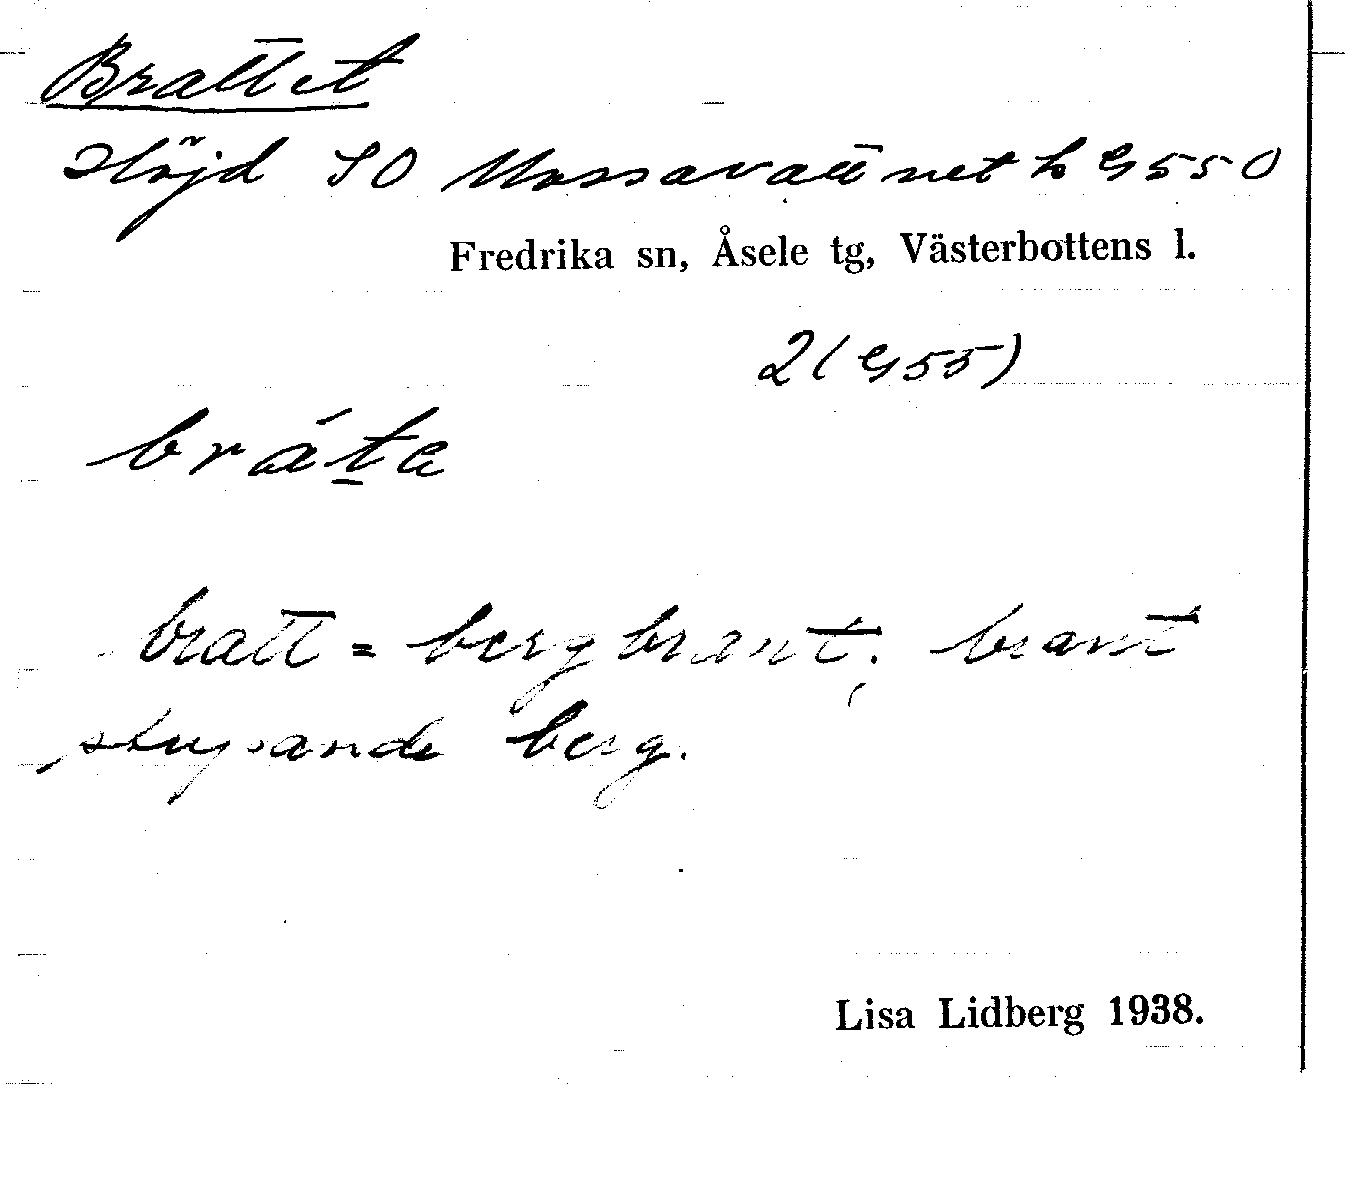 Brattet
Höjd SO Mossavattnet h G550
Fredrika sn, Åsele tg, Västerbottens l.
2 (G55)
bráta
bratt = bergbrant; brant
stupande berg.
Lisa Lidberg 1938.